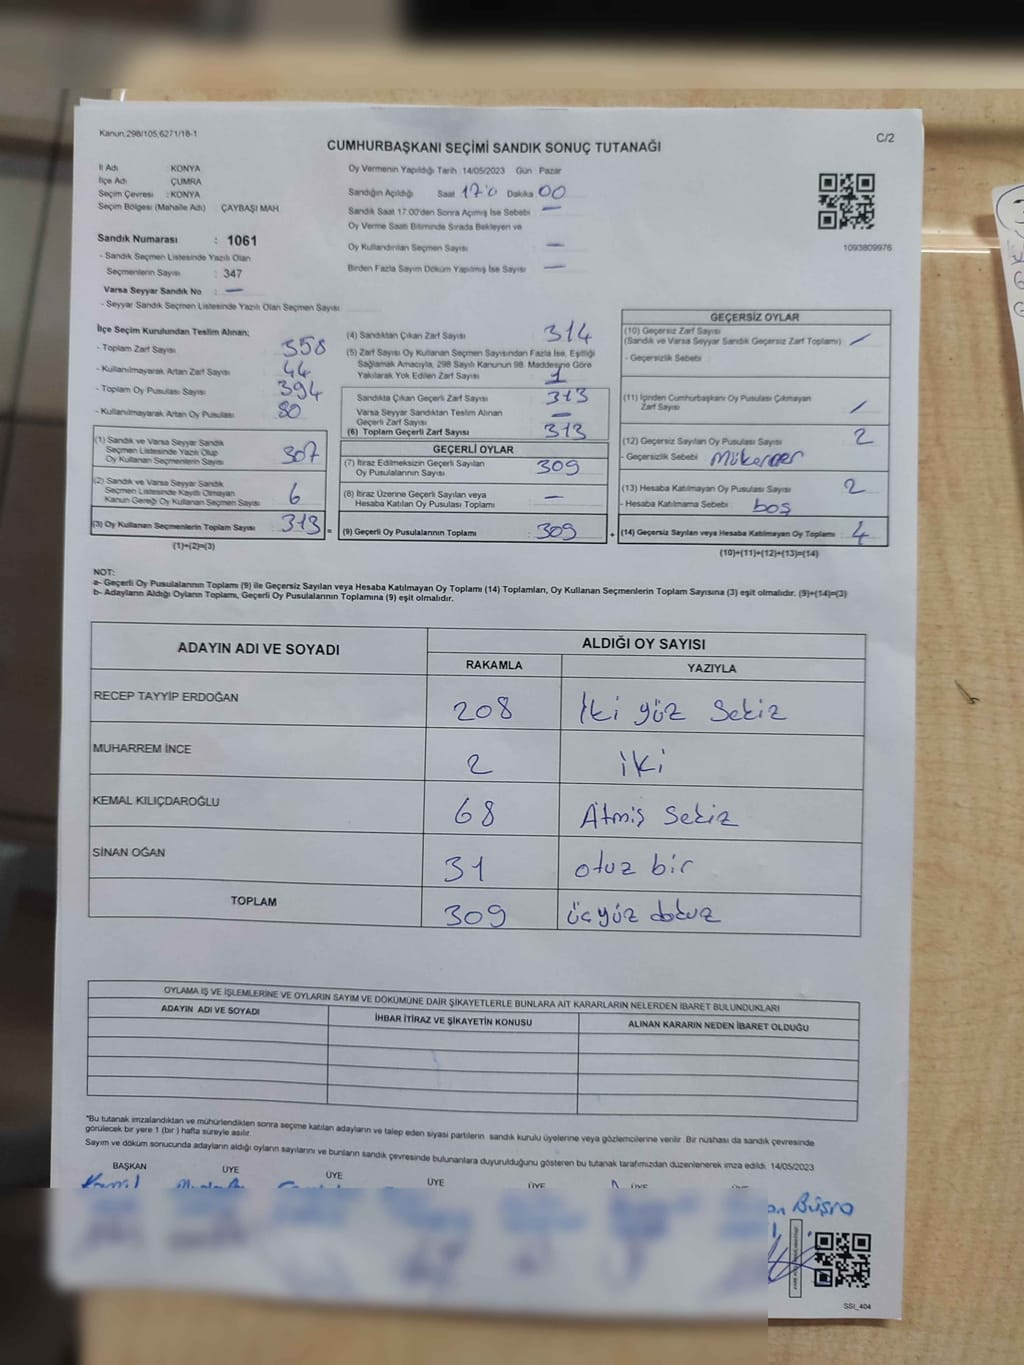 Kanun,298/105,6271/18-1
C/2
CUMHURBAŞKANI SEÇİMİ SANDIK SONUÇ TUTANAĞI
İl Adı KONYA
İlçe Adı ÇUMRA
Seçim Çevresi : KONYA
Seçim Bölgesi (Mahalle Adı) ÇAYBAŞI MAH
Sandık Numarası : 1061
- Sandık Seçmen Listesinde Yazılı Olan
Seçmenlerin Sayısı : 347
Varsa Seyyar Sandık No : —
- Seyyar Sandık Seçmen Listesinde Yazılı Olan Seçmen Sayısı
Oy Vermenin Yapıldığı Tarih 14/05/2023 Gün Pazar
Sandığın Açıldığı Saat 17:0 Dakika 00
Sandık Saat 17.00'den Sonra Açılmış İse Sebebi —
Oy Verme Saati Bitiminde Sırada Bekleyen ve
Oy Kullandırılan Seçmen Sayısı —
Birden Fazla Sayım Döküm Yapılmış İse Sayısı —
1093809976
İlçe Seçim Kurulundan Teslim Alınan:
- Toplam Zarf Sayısı 358
- Kullanılmayarak Artan Zarf Sayısı 44
- Toplam Oy Pusulası Sayısı 394
- Kullanılmayarak Artan Oy Pusulası 80
(1) Sandık ve Varsa Seyyar Sandık
Seçmen Listesinde Yazılı Olup
Oy Kullanan Seçmenlerin Sayısı 307
(2) Sandık ve Varsa Seyyar Sandık
Seçmen Listesinde Kayıtlı Olmayan
Kanun Gereği Oy Kullanan Seçmen Sayısı : 6
(3) Oy Kullanan Seçmenlerin Toplam Sayısı : 313 =
(1)+(2)=(3)
(4) Sandıktan Çıkan Zarf Sayısı 314
(5) Zarf Sayısı Oy Kullanan Seçmen Sayısından Fazla İse, Eşitliği
Sağlamak Amacıyla, 298 Sayılı Kanunun 98. Maddesine Göre
Yakılarak Yok Edilen Zarf Sayısı 1
Sandıkta Çıkan Geçerli Zarf Sayısı 313
Varsa Seyyar Sandıktan Teslim Alınan
Geçerli Zarf Sayısı —
(6) Toplam Geçerli Zarf Sayısı 313
GEÇERLİ OYLAR
(7) İtiraz Edilmeksizin Geçerli Sayılan
Oy Pusulalarının Sayısı 309
(8) İtiraz Üzerine Geçerli Sayılan veya
Hesaba Katılan Oy Pusulası Toplamı —
(9) Geçerli Oy Pusulalarının Toplamı : 309 +
GEÇERSİZ OYLAR
(10) Geçersiz Zarf Sayısı
(Sandık ve Varsa Seyyar Sandık Geçersiz Zarf Toplamı)
- Geçersizlik Sebebi
(11) İçinden Cumhurbaşkanı Oy Pusulası Çıkmayan
Zarf Sayısı
(12) Geçersiz Sayılan Oy Pusulası Sayısı 2
- Geçersizlik Sebebi Mükerrer
(13) Hesaba Katılmayan Oy Pusulası Sayısı 2
- Hesaba Katılmama Sebebi boş
(14) Geçersiz Sayılan veya Hesaba Katılmayan Oy Toplamı : 4
(10)+(11)+(12)+(13)=(14)
NOT:
a- Geçerli Oy Pusulalarının Toplamı (9) ile Geçersiz Sayılan veya Hesaba Katılmayan Oy Toplamı (14) Toplamları, Oy Kullanan Seçmenlerin Toplam Sayısına (3) eşit olmalıdır. (9)+(14)=(3)
b- Adayların Aldığı Oyların Toplamı, Geçerli Oy Pusulalarının Toplamına (9) eşit olmalıdır.
ADAYIN ADI VE SOYADI
ALDIĞI OY SAYISI
RAKAMLA YAZIYLA
RECEP TAYYİP ERDOĞAN 208 İki yüz Sekiz
MUHARREM İNCE 2 iki
KEMAL KILIÇDAROĞLU 68 Atmiş Sekiz
SİNAN OĞAN 31 otuz bir
TOPLAM 309 üçyüz dokuz
OYLAMA İŞ VE İŞLEMLERİNE VE OYLARIN SAYIM VE DÖKÜMÜNE DAİR ŞİKAYETLERLE BUNLARA AİT KARARLARIN NELERDEN İBARET BULUNDUKLARI
ADAYIN ADI VE SOYADI İHBAR İTİRAZ VE ŞİKAYETİN KONUSU ALINAN KARARIN NEDEN İBARET OLDUĞU
*Bu tutanak imzalandıktan ve mühürlendikten sonra seçime katılan adayların ve talep eden siyasi partilerin sandık kurulu üyelerine veya gözlemcilerine verilir. Bir nüshası da sandık çevresinde
görülecek bir yere 1 (bir) hafta süreyle asılır.
Sayım ve döküm sonucunda adayların aldığı oyların sayılarını ve bunların sandık çevresinde bulunanlara duyurulduğunu gösteren bu tutanak tarafımızdan düzenlenerek imza edildi. 14/05/2023
BAŞKAN ÜYE ÜYE ÜYE ÜYE ÜYE
Büşra
SSI_404